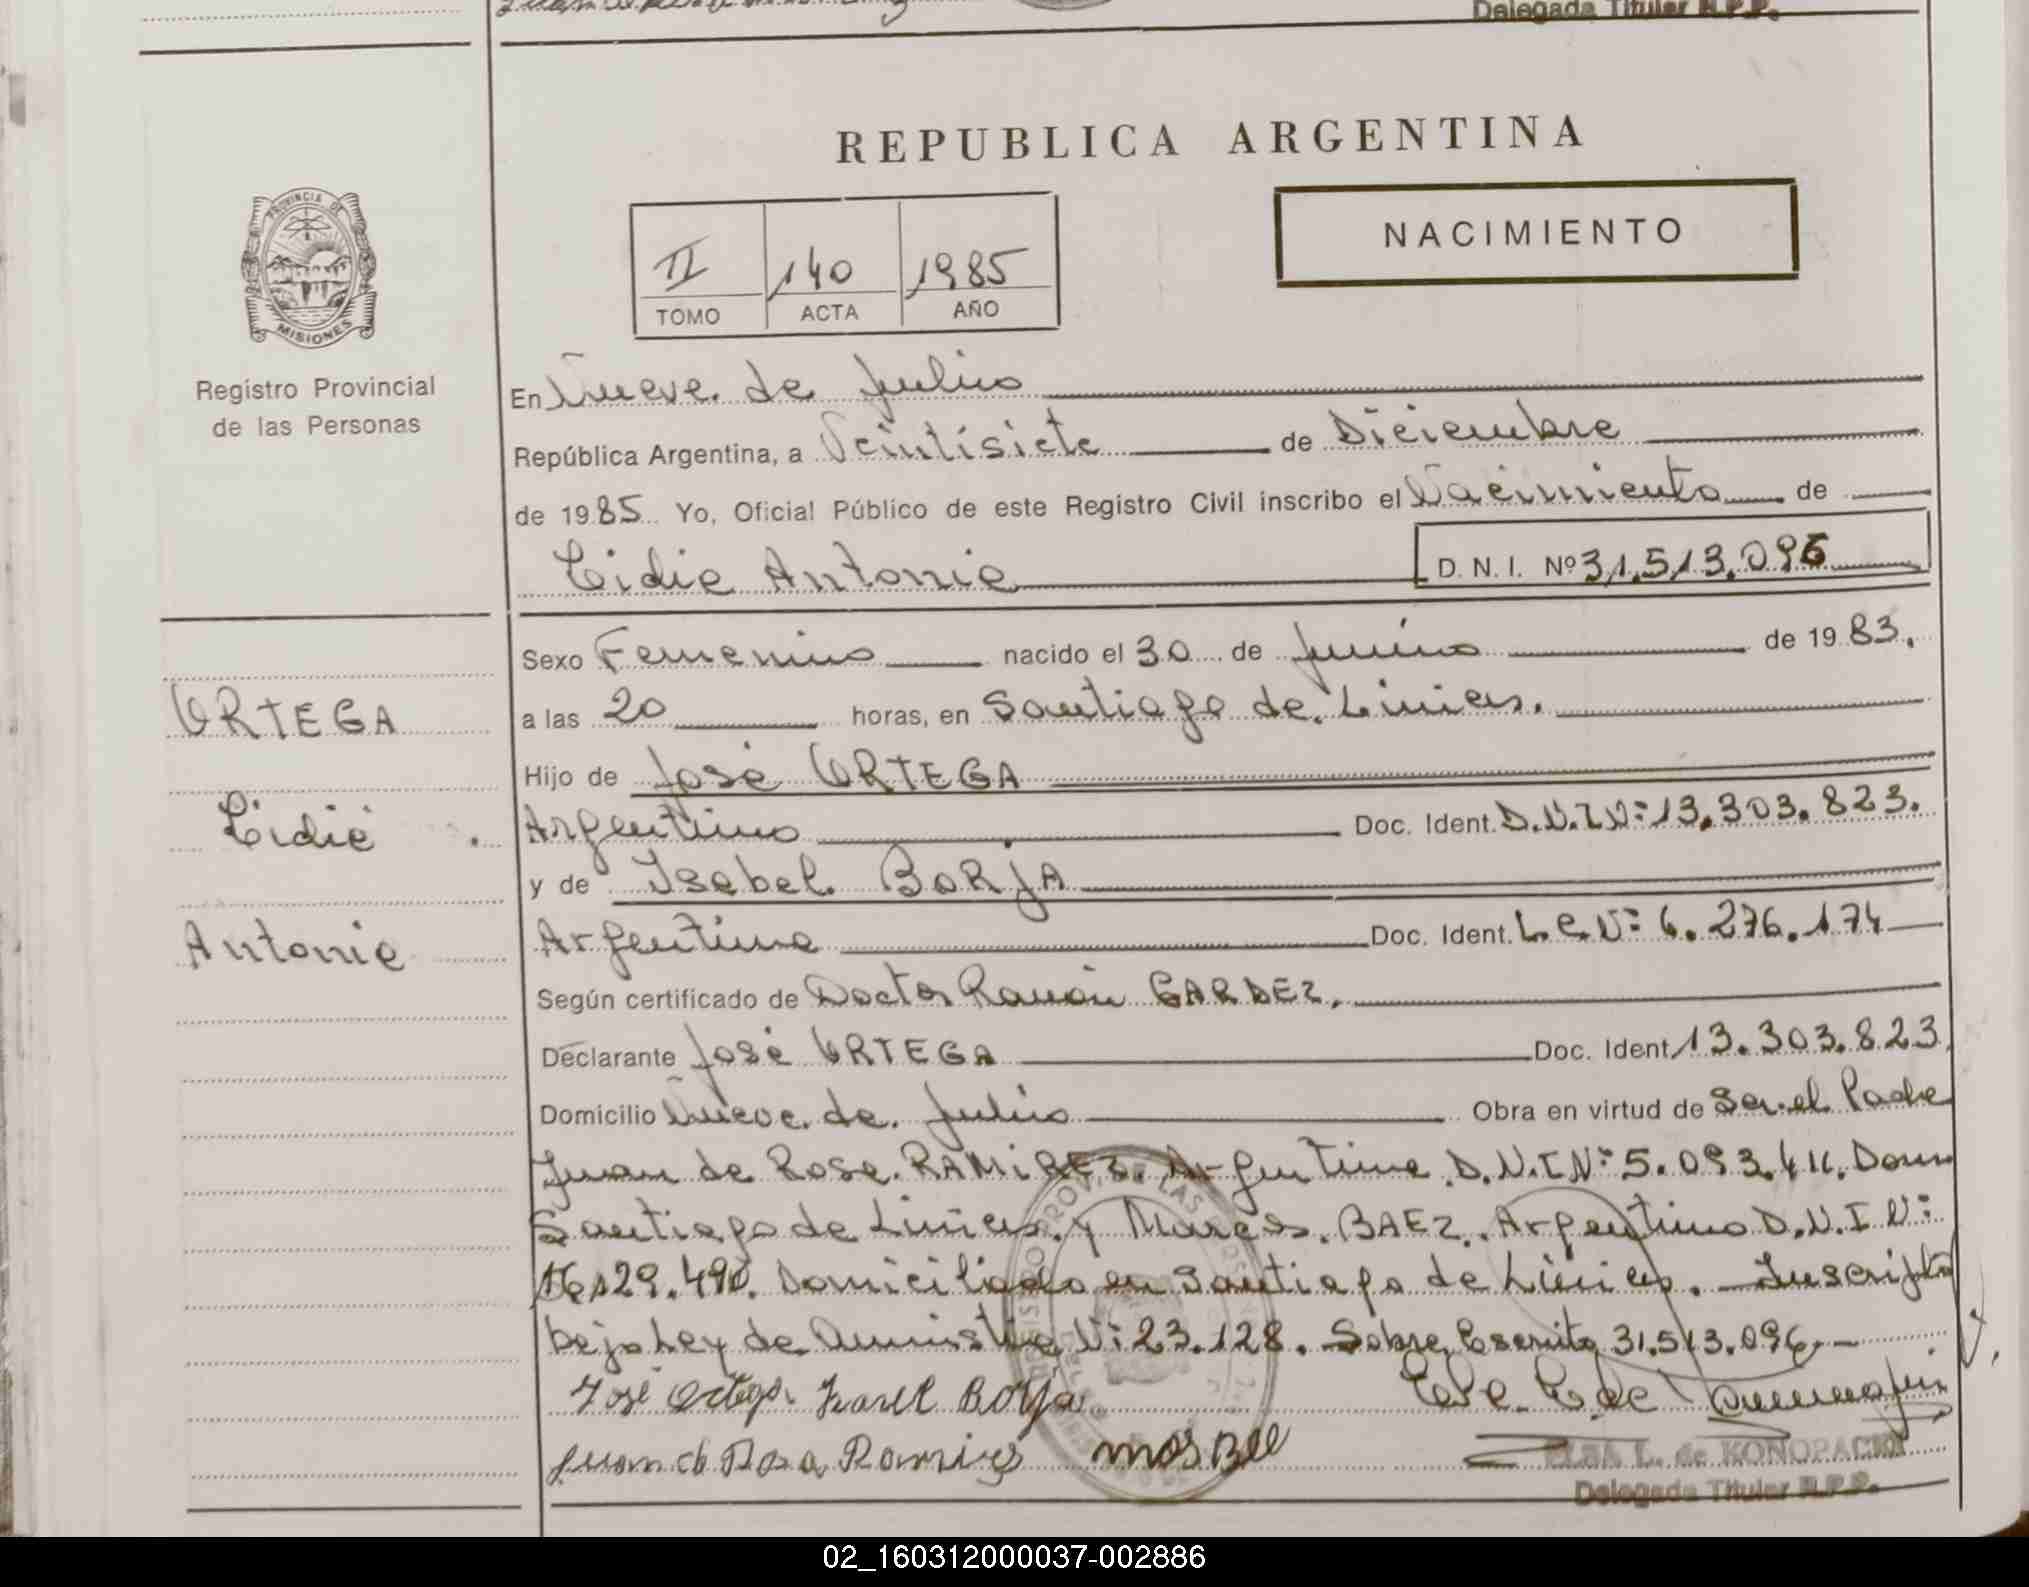 Delegada Titular R.P.P.
REPUBLICA ARGENTINA
PROVINCIA DE
MISIONES
Registro Provincial
de las Personas
II 140 1985
TOMO ACTA AÑO
NACIMIENTO
En Nueve de Julio
República Argentina, a Veintisiete de Diciembre
de 1985 Yo, Oficial Público de este Registro Civil inscribo el Nacimiento de
Lidia Antonia
D. N. I. Nº 31.513.096
ORTEGA
Lidia
Antonia
Sexo Femenino nacido el 30 de Junio de 1983.
a las 20 horas, en Santiago de Liniers.
Hijo de José ORTEGA
Argentino Doc. Ident. D.N.I Nº 13.303.823.
y de Isabel BORJA
Argentina Doc. Ident. L.C. Nº 6.276.174
Según certificado de Doctor Ramón GARDEZ.
Declarante José ORTEGA Doc. Ident 13.303.823
Domicilio Nueve de Julio Obra en virtud de Ser el Padre
Juan de Rosa RAMIREZ. Argentino D.N.I Nº 5.093.411. Dom
Santiago de Liniers y Marcos BAEZ. Argentino D.N.I Nº
Domiciliado en Santiago de Liniers. Inscripto
bajo Ley de Amnistia Nº 23.128. Sobre Escrito 31.513.096
José Ortega Isabel Borja
Juan d Rosa Ramires
ELSA L. de KONOPACKI
Delegada Titular R.P.P.
02_160312000037-002886